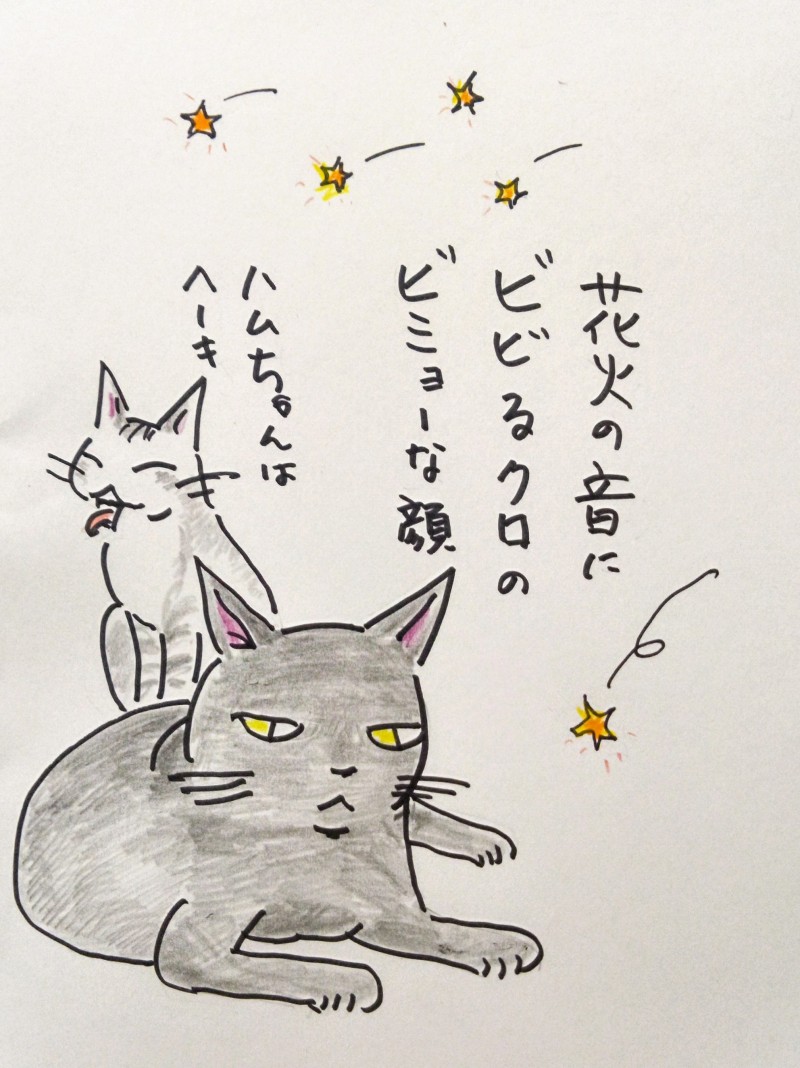 花火の音に
ビビるクロの
ビミョーな顔
ハムちゃんは
ヘーキ